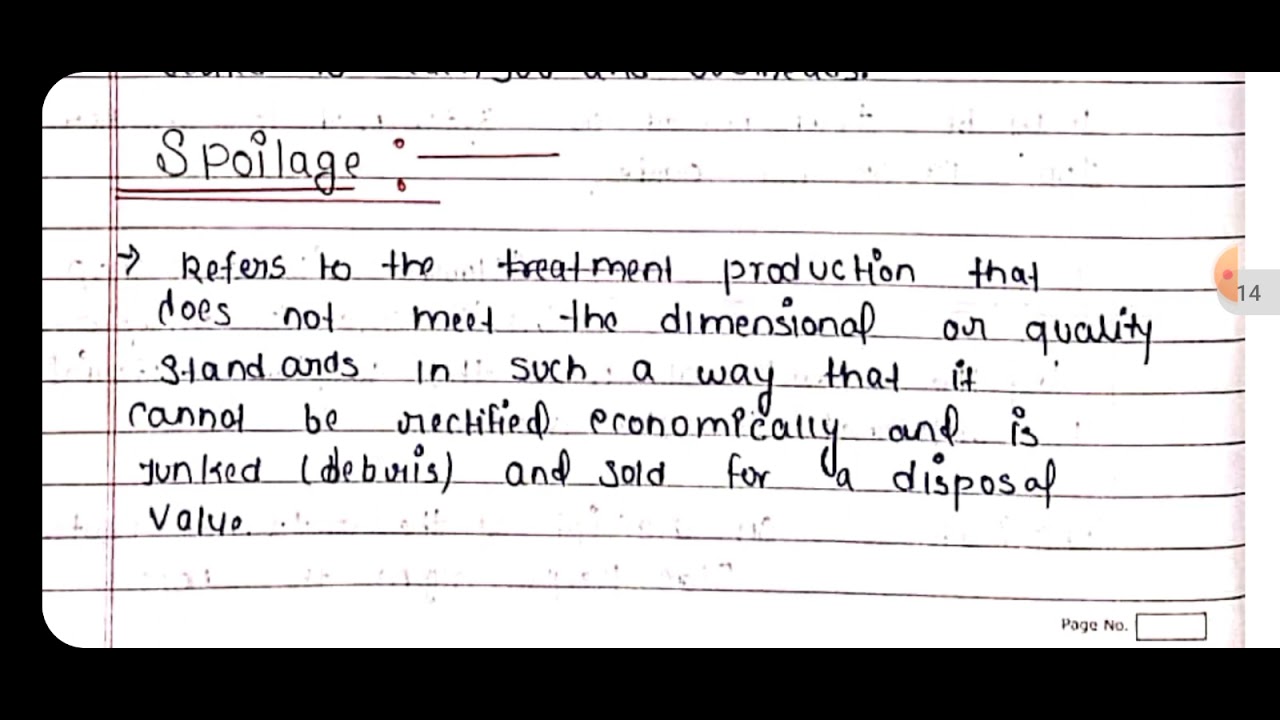 Spoilage :
→ Refers to the treatment production that
does not meet the dimensional or quality
standards in such a way that it
cannot be rectified economically and is
junked (deburis) and sold for a disposal
value.
Page No.
14